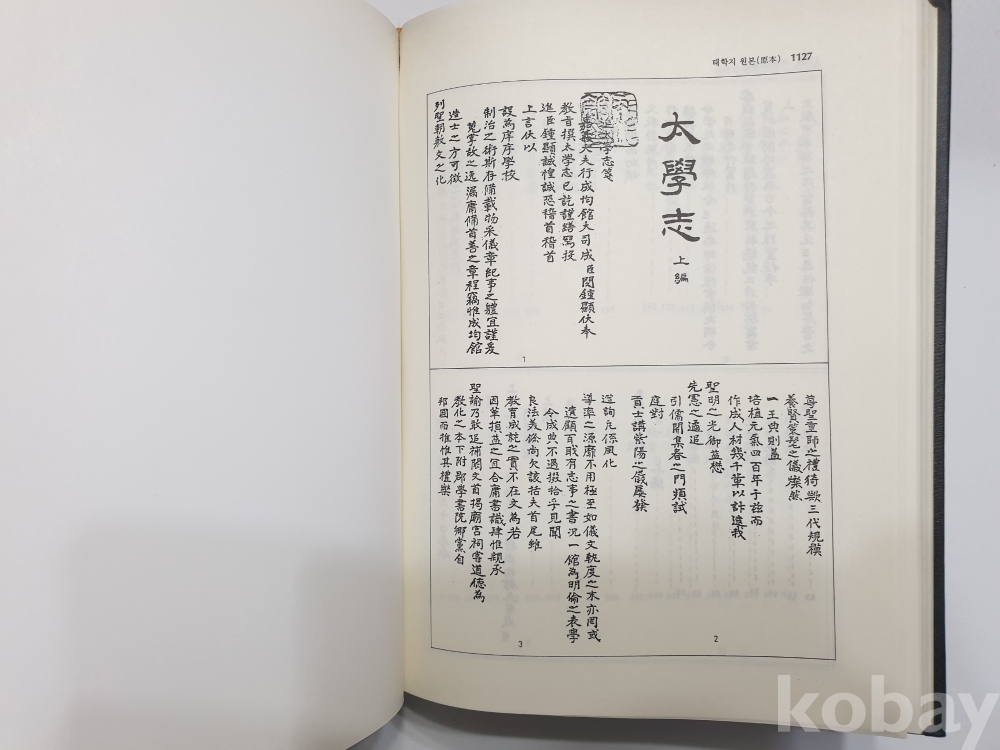 태학지 원본(原本) 1127
太學志
上編
學志箋
大夫行成均館大司成臣閔鍾顯伏奉
教旨撰太學志已訖謹繕寫投
進臣鍾顯誠惶誠恐稽首稽首
上言伏以
設為庠序學校
制治之術斯存備載物采儀章紀事之體宜謹爰
蒐掌故之逸漏庸備首善之章程竊惟成均館
造士之方可徵
列聖朝敎文之化
1
尊聖重師之禮猗歟三代規模
養賢策髦之儀燦然
一王典則蓋
培植元氣四百年于茲而
作成人材幾千輩以訖逮我
聖明之光御益懋
先憲之遹追
引儒開集春之門頻試
庭對
貢士講紫陽之

2
遂詢允係風化
導率之源靡不用極至如儀文軌度之末亦罔或
遺顧百職有志事之書況一館為明倫之表學
令成典不過掇拾乎見聞
良法美條尚欠該括夫首尾雖
教育成就之實不在文為若
因革損益之宜合庸書識肆惟親承
聖諭乃敢追補闕文首揭廟宮祠享道德為
教化之本下附郡學書院鄉黨自
邦國而推惟其禮樂
3
kobay